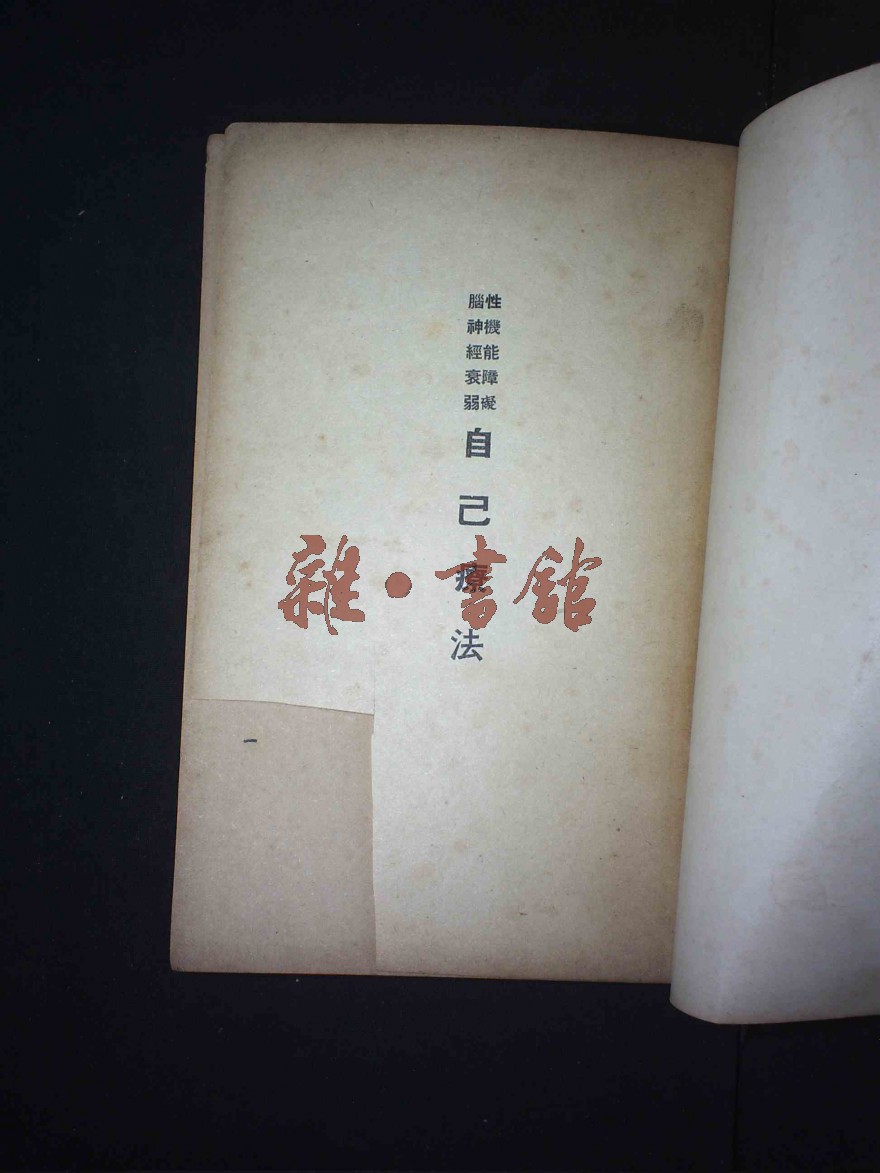 性機能障礙
腦神經衰弱
自己療法
雜·書館
一